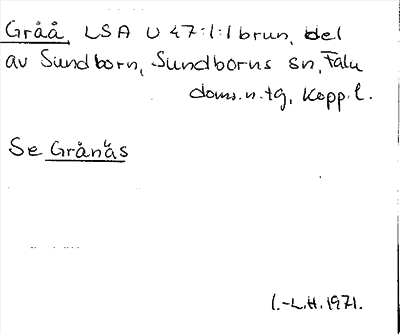 Gråå, LSA U 47:1:1 brun, del
av Sundborn, Sundborns sn, Falu
doms.n.tg, Kopp.l.
Se Grånäs
I.-L.H. 1971.